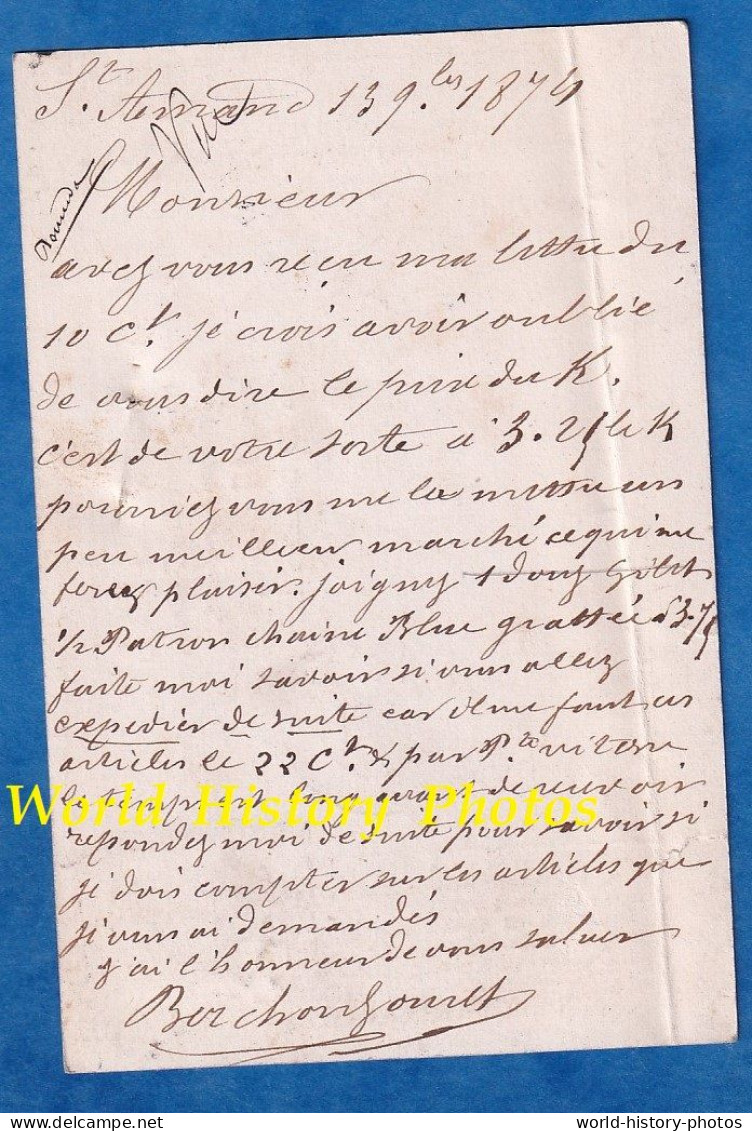 St. Amand 13 9.bre 1874
Monsieur
avez vous reçu ma lettre du
10 Ct. je crois avoir oublié
de vous dire le prix du K.
c'est de votre sorte a 3.25 le K
pourriez vous me la mettre un
peu meilleur marché ce qui me
plaisir. joigny 1 douz Gilet
1/2 Patron chaine Blue grattée a 53.75
faite moi savoir si vous allez
expedier de suite car il me faut ces
articles le 22 Ct. & par vitesse
le temp est long avant de recevoir
repondez moi de suite pour savoir si
je dois compter sur les articles que
je vous ai demandés
j'ai l'honneur de vous saluer
World History Photos
world-history-photos